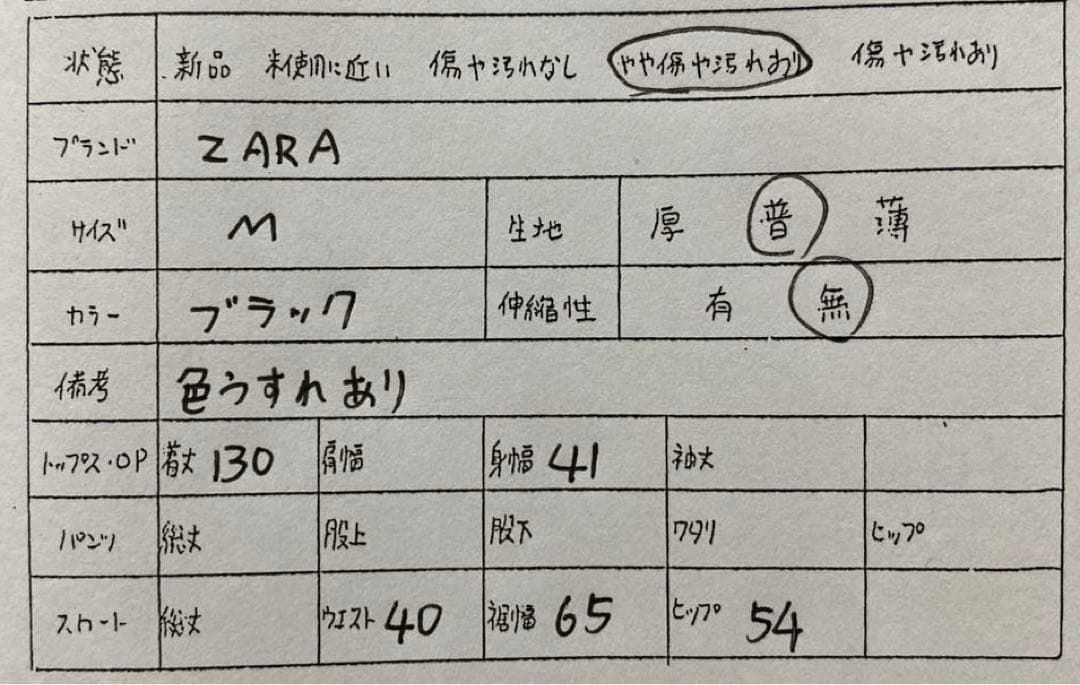 状態 新品 未使用に近い 傷や汚れなし やや傷や汚れあり 傷や汚れあり
ブランド ZARA
サイズ M 生地 厚 普 薄
カラー ブラック 伸縮性 有 無
備考 色うすれあり
トップス・OP 着丈 130 肩幅 身幅 41 袖丈
パンツ 総丈 股上 股下 ワタリ ヒップ
スカート 総丈 ウエスト 40 裾幅 65 ヒップ 54